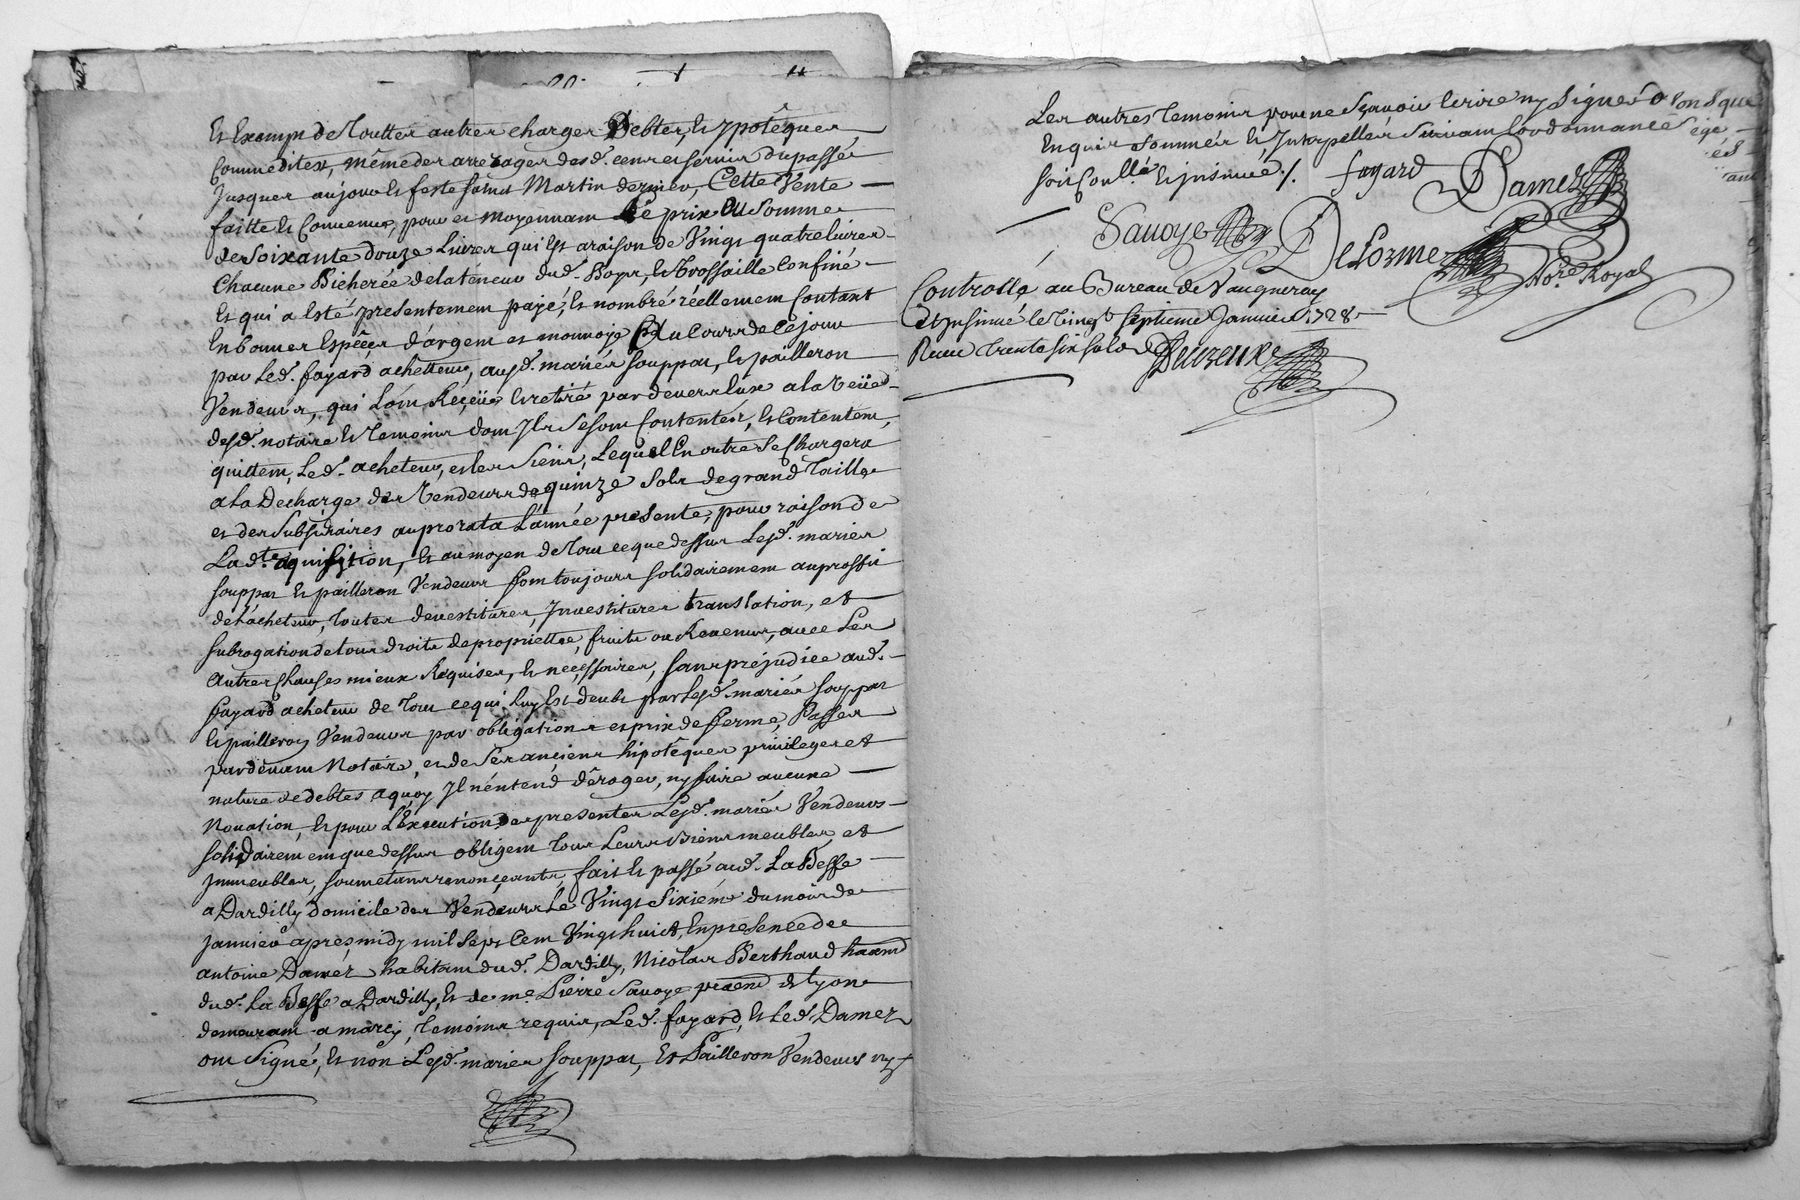 Et Exempt de Touttes autres charges Debtes, Et ypotêques
Comme dites, même des arrerages desd. cens et servis du passé
Jusques aujour Et feste saint Martin dernier, Cette Vente
faitte Et Convenue, pour et moyennant Le prix Et Somme
de Soixante douze Livres qui Est araison de Vingt quatre Livres
Chacune Bicherée de la teneur dud. Bois, Et Brossaille Confiné
Et qui a Esté presentement payé, Et nombré réellement Contant
En bonnes Espêces d'argent et monnoye Du Cours de Ce jour
par Led. fayard achetteur, ausd. mariés souppat, Et pailleron
Vendeurs, qui Lont Reçeüe Et retiré par devers Eux a la Veüe
desd. notaire Et Temoins dont Ils se sont Contentés, Et Contentent,
quittent, Led. acheteur, et les siens, Lequel En outre se Chargera
a la Decharge des Vendeurs de quinze Sols de grand Taille
et des Subsidiaires au prorata L'année presente, pour raison de
La d.te aquisition, Et au moyen de Tout ce que dessus Lesd. mariés
souppat Et pailleron Vendeurs font toujours solidairement au proffit
de L'acheteur, Toutes devestitures, Investitures translation, et
subrogation de tous droits de proprietté, fruits ou Revenus, avec Les
autres Clauses mieux Requises, Et neçessaires, sans préjudice aud.
fayard acheteur de Tout ce qui Luy Est deubt par Lesd. mariés souppat
Et pailleron Vendeurs par obligations et prix de fferme, Passés
pardevant Notaire, et de Ses anciens hipotêques privileges et
nature de debtes aquoy Il n'entend dêroger, ny faire aucune
Novation, Et pour L'Execution des presentes Lesd. mariés Vendeurs
solidairement que dessus obligent Tous Leurs Biens meubles et
Immeubles, soumetans renonçeants, fait Et passé aud. La Besse
a Dardilly domicile des Vendeurs Le Vingt Sixiéme du mois de
Janvier aprés midy mil Sept Cent Vingt huict, En presence de
antoine Damez habitant dud. Dardilly, Nicolas Berthaud
dud. La Besse a Dardilly, Et de me. Pierre Savoye de Lyon
demeurant a marcy, Temoins requis, Led. fayard, Et Led. Damez
ont Signé, Et non Lesd. mariés souppat, Et Pailleron Vendeurs ny
Les autres Temoins pour ne Sçavoir Ecrire ny Signer
Enquis Sommés Et Interpellés Suivant Lordonnance
soit Conll.é Et insinué /. fayard Damez
Savoye DeLorme
No.re Royal
Controllé au Bureau de Vaugneray
Et insinué le Vingt septieme Janvier 1728
Receu trente six sols Deuzeux